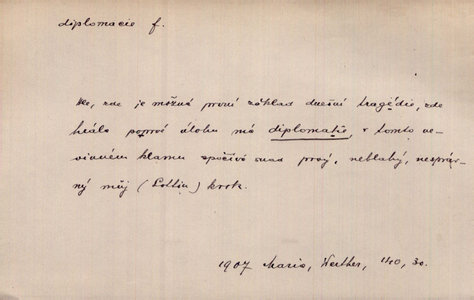 diplomacie f.
zde je možná první základ dnešní tragédie, zde
hrála poprvé úlohu má diplomatie, v tomto ne-
vinném klamu spočívá snad prvý, neblahý, nespráv-
ný můj (Lottin) krok.
1907 Maria, Werther, 1/10, 30.